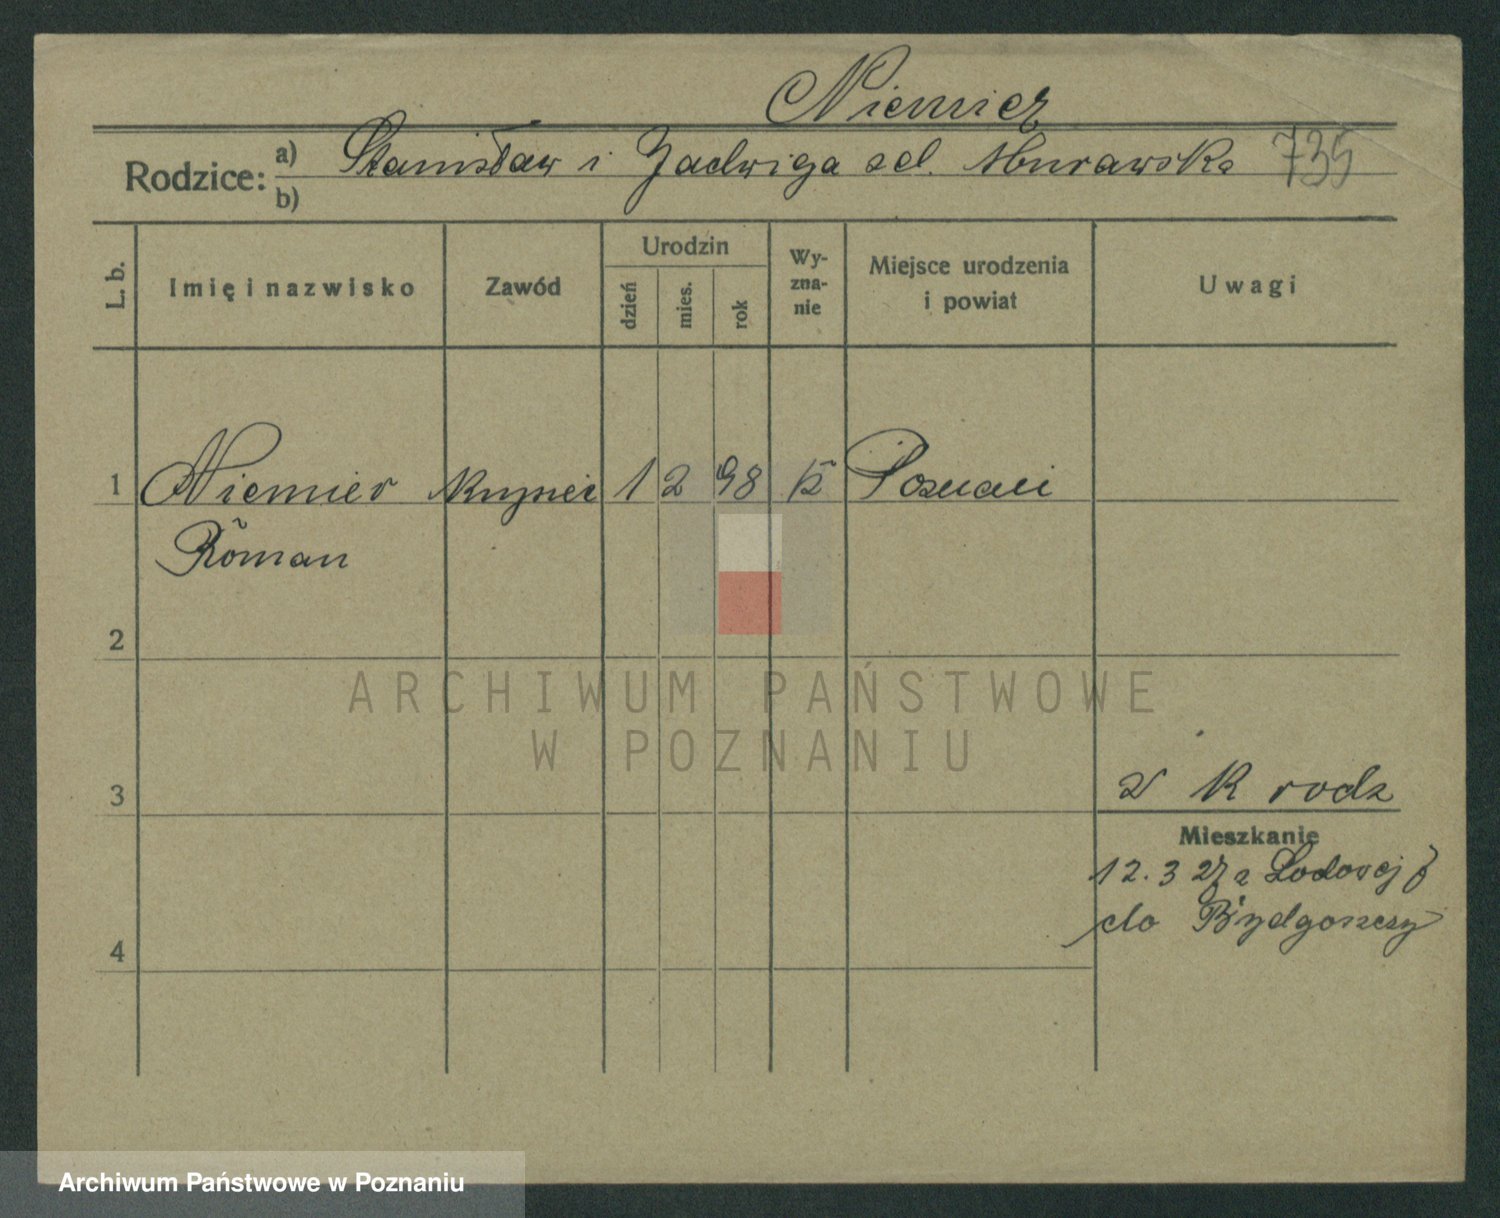 Niemier
Rodzice: a) Stanisław i Jadwiga zd. Murawska 735
b)
L. b. Imię i nazwisko Zawód Urodzin dzień mies. rok Wyznanie Miejsce urodzenia i powiat Uwagi
1 Niemier 1 2 98 k Poznań
Roman
2
ARCHIWUM PAŃSTWOWE
W POZNANIU
3 rodz
Mieszkanie
12.3 27 z
4 do Bydgoszczy
Archiwum Państwowe w Poznaniu